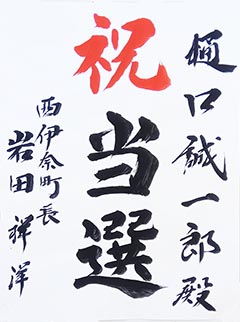 樋口誠一郎殿
祝当選
西伊奈町長
岩田祥洋